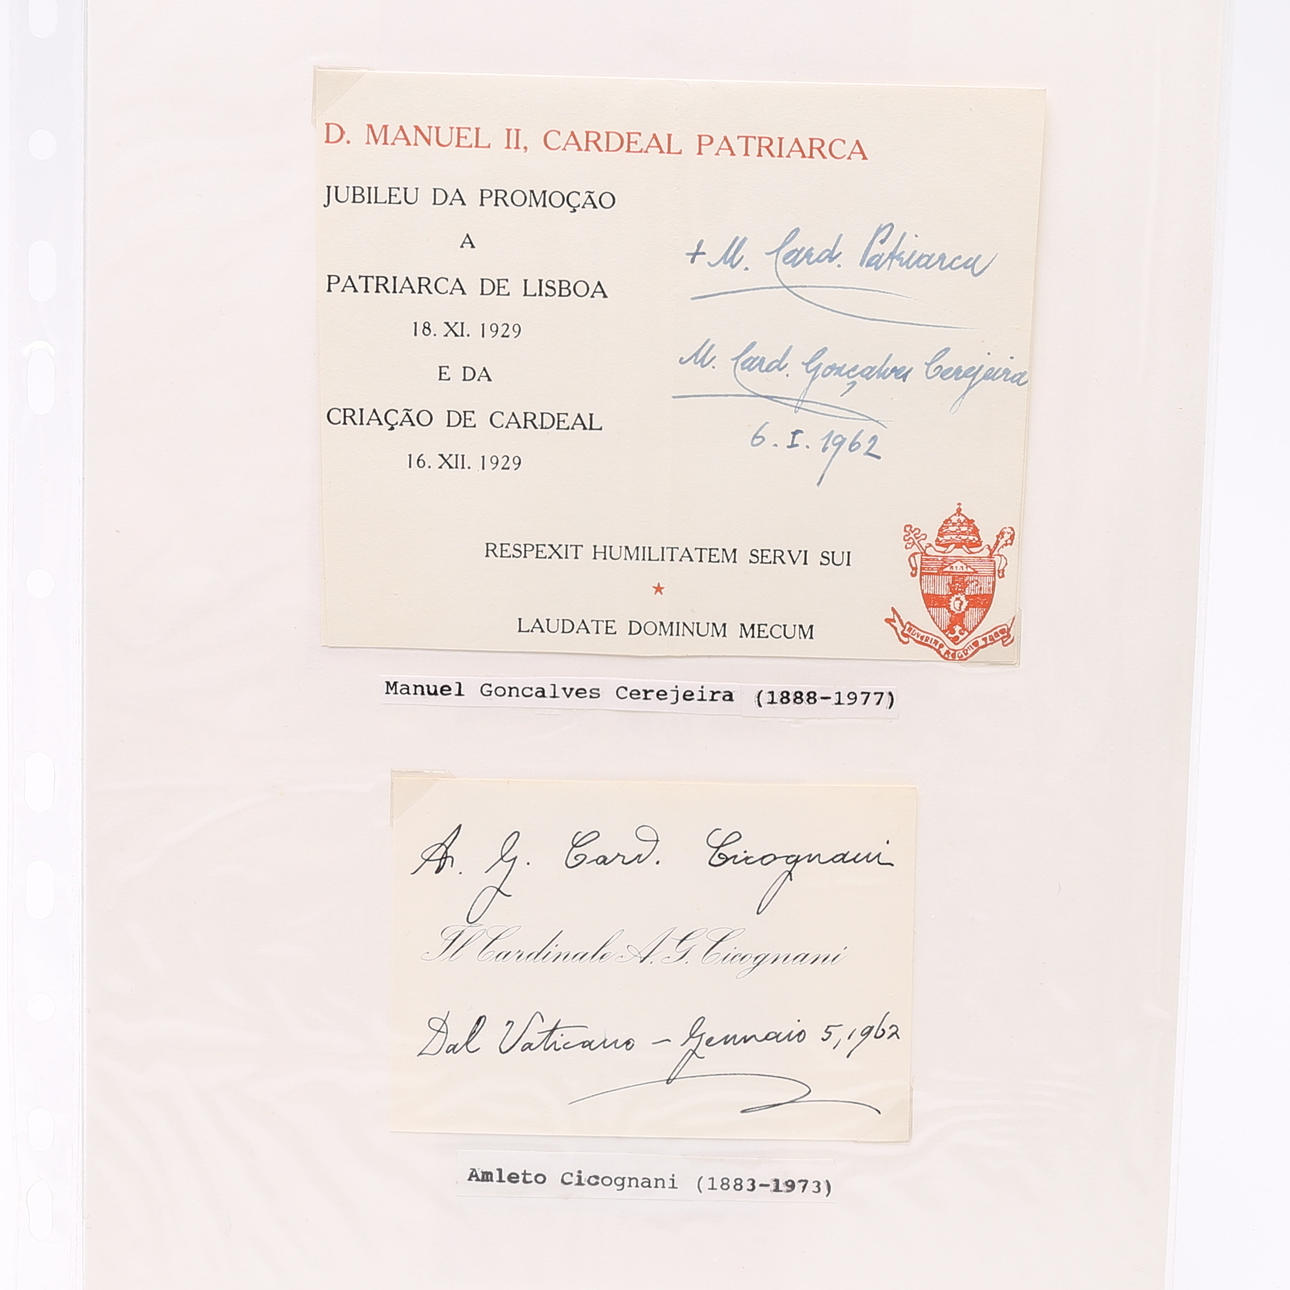 D. MANUEL II, CARDEAL PATRIARCA
JUBILEU DA PROMOÇÃO
A
PATRIARCA DE LISBOA
18. XI. 1929
E DA
CRIAÇÃO DE CARDEAL
16. XII. 1929
+ M. Card. Patriarca
M. Card. Gonçalves Cerejeira
6. I. 1962
RESPEXIT HUMILITATEM SERVI SUI
LAUDATE DOMINUM MECUM
Manuel Goncalves Cerejeira (1888-1977)
A. G. Card. Cicognani
Il Cardinale A. G. Cicognani
Dal Vaticano – Gennaio 5, 1962
Amleto Cicognani (1883-1973)